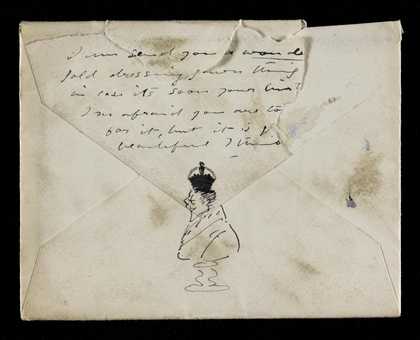 I'm send you a wonde
gold dressing gown thing
in case its soon your birt
I'm afraid you are to
for it, but it is
beautiful I think